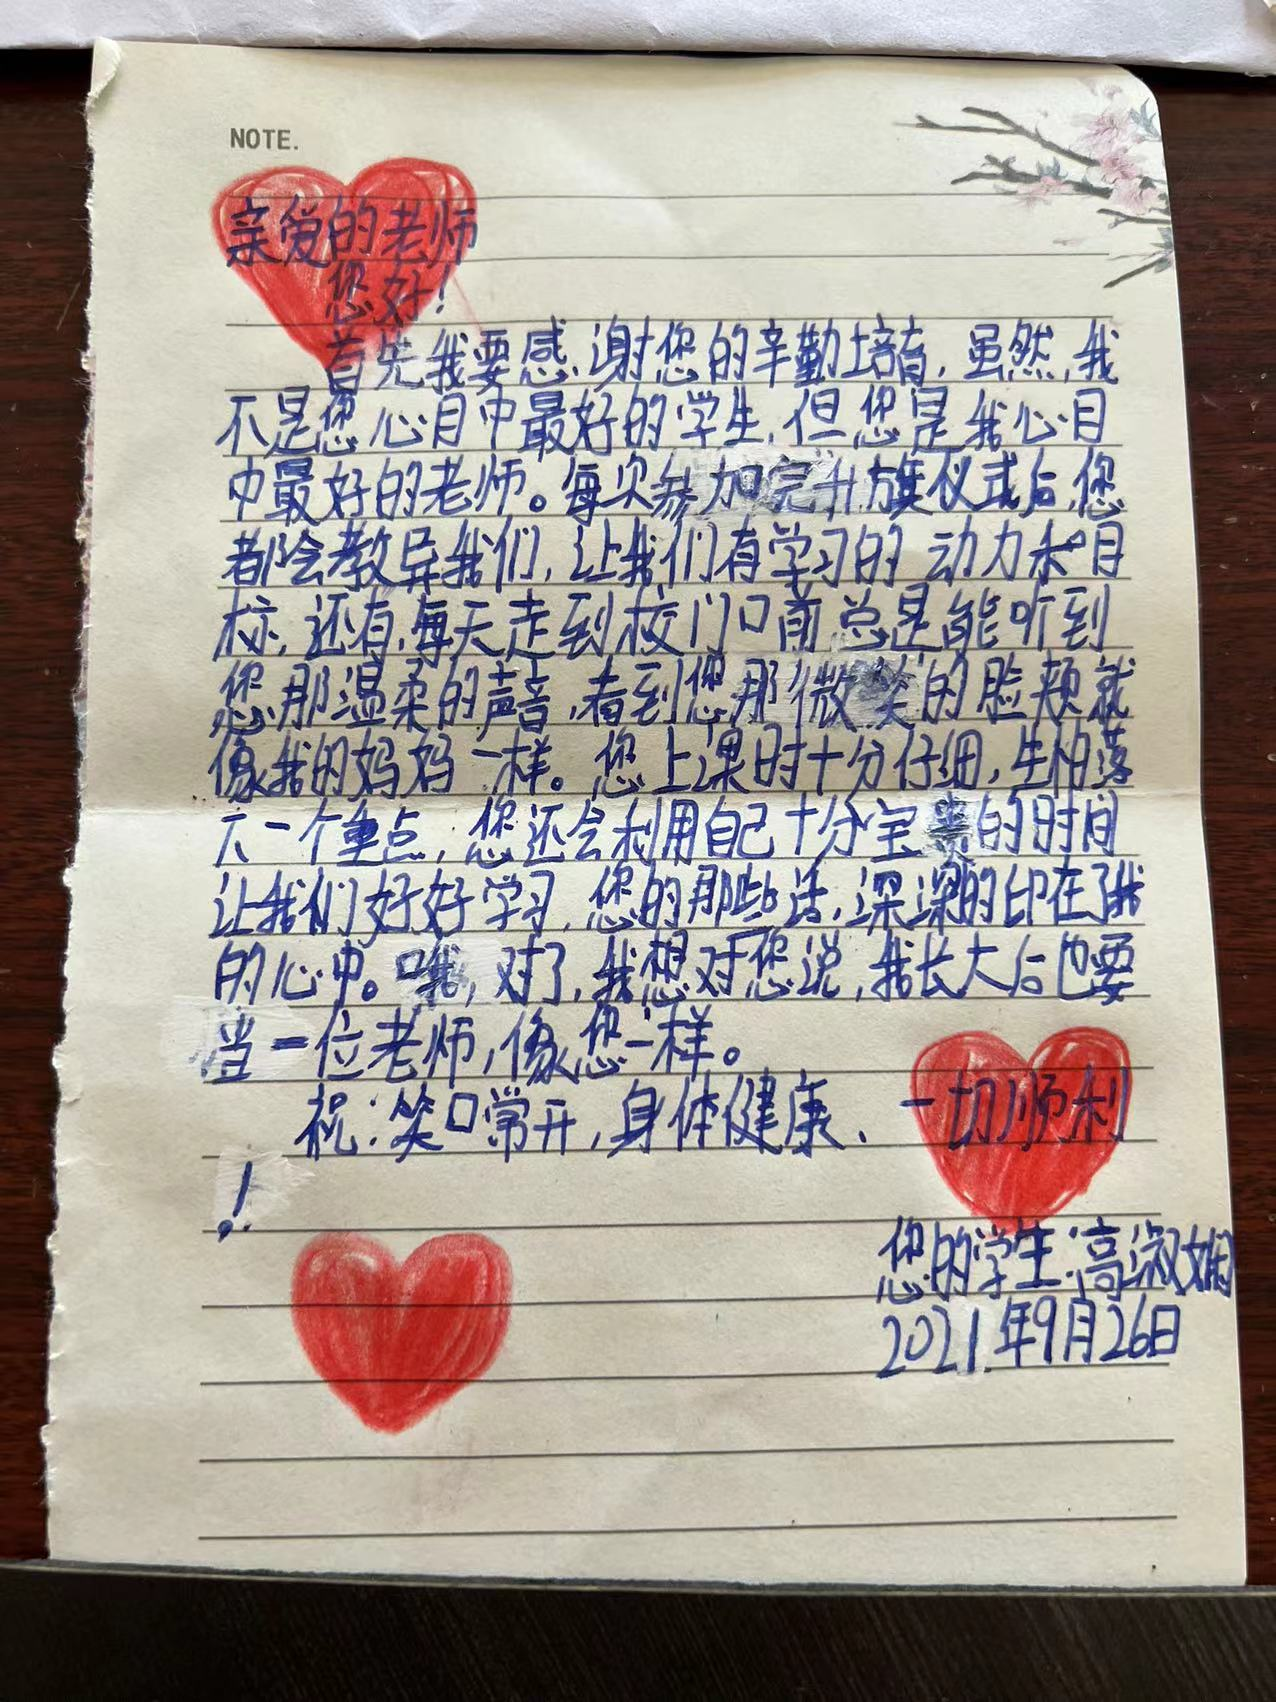 NOTE.
亲爱的老师
您好!
首先我要感谢您的辛勤培育,虽然,我
不是您心目中最好的学生,但您是我心目
中最好的老师。每次参加完升旗仪式后,您
都会教导我们,让我们有学习的动力和目
标,还有,每天走到校门口前总是能听到
您那温柔的声音,看到您那微笑的脸颊就
像我的妈妈一样。您上课时十分仔细,生怕落
下一个重点,您还会利用自己十分宝贵的时间
让我们好好学习,您的那些话,深深的印在了我
的心中。哦,对了,我想对您说,我长大后也要
当一位老师,像您一样。
祝:笑口常开,身体健康、一切顺利
!
您的学生:高淑娴
2021年9月26日